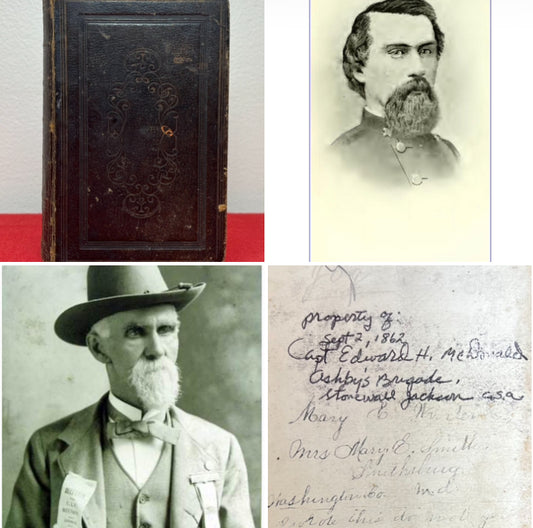 property of:
Sept 2, 1862
Capt Edward H. McDonald
Ashby's Brigade,
Stonewall Jackson C.S.A
Mary E.
Mrs Mary E. Smith
Smithsburg
Washington Co Md.
I wrote this